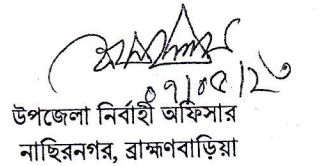 ০৭/০৫/২৩
উপজেলা নির্বাহী অফিসার
নাছিরনগর, ব্রাহ্মণবাড়িয়া